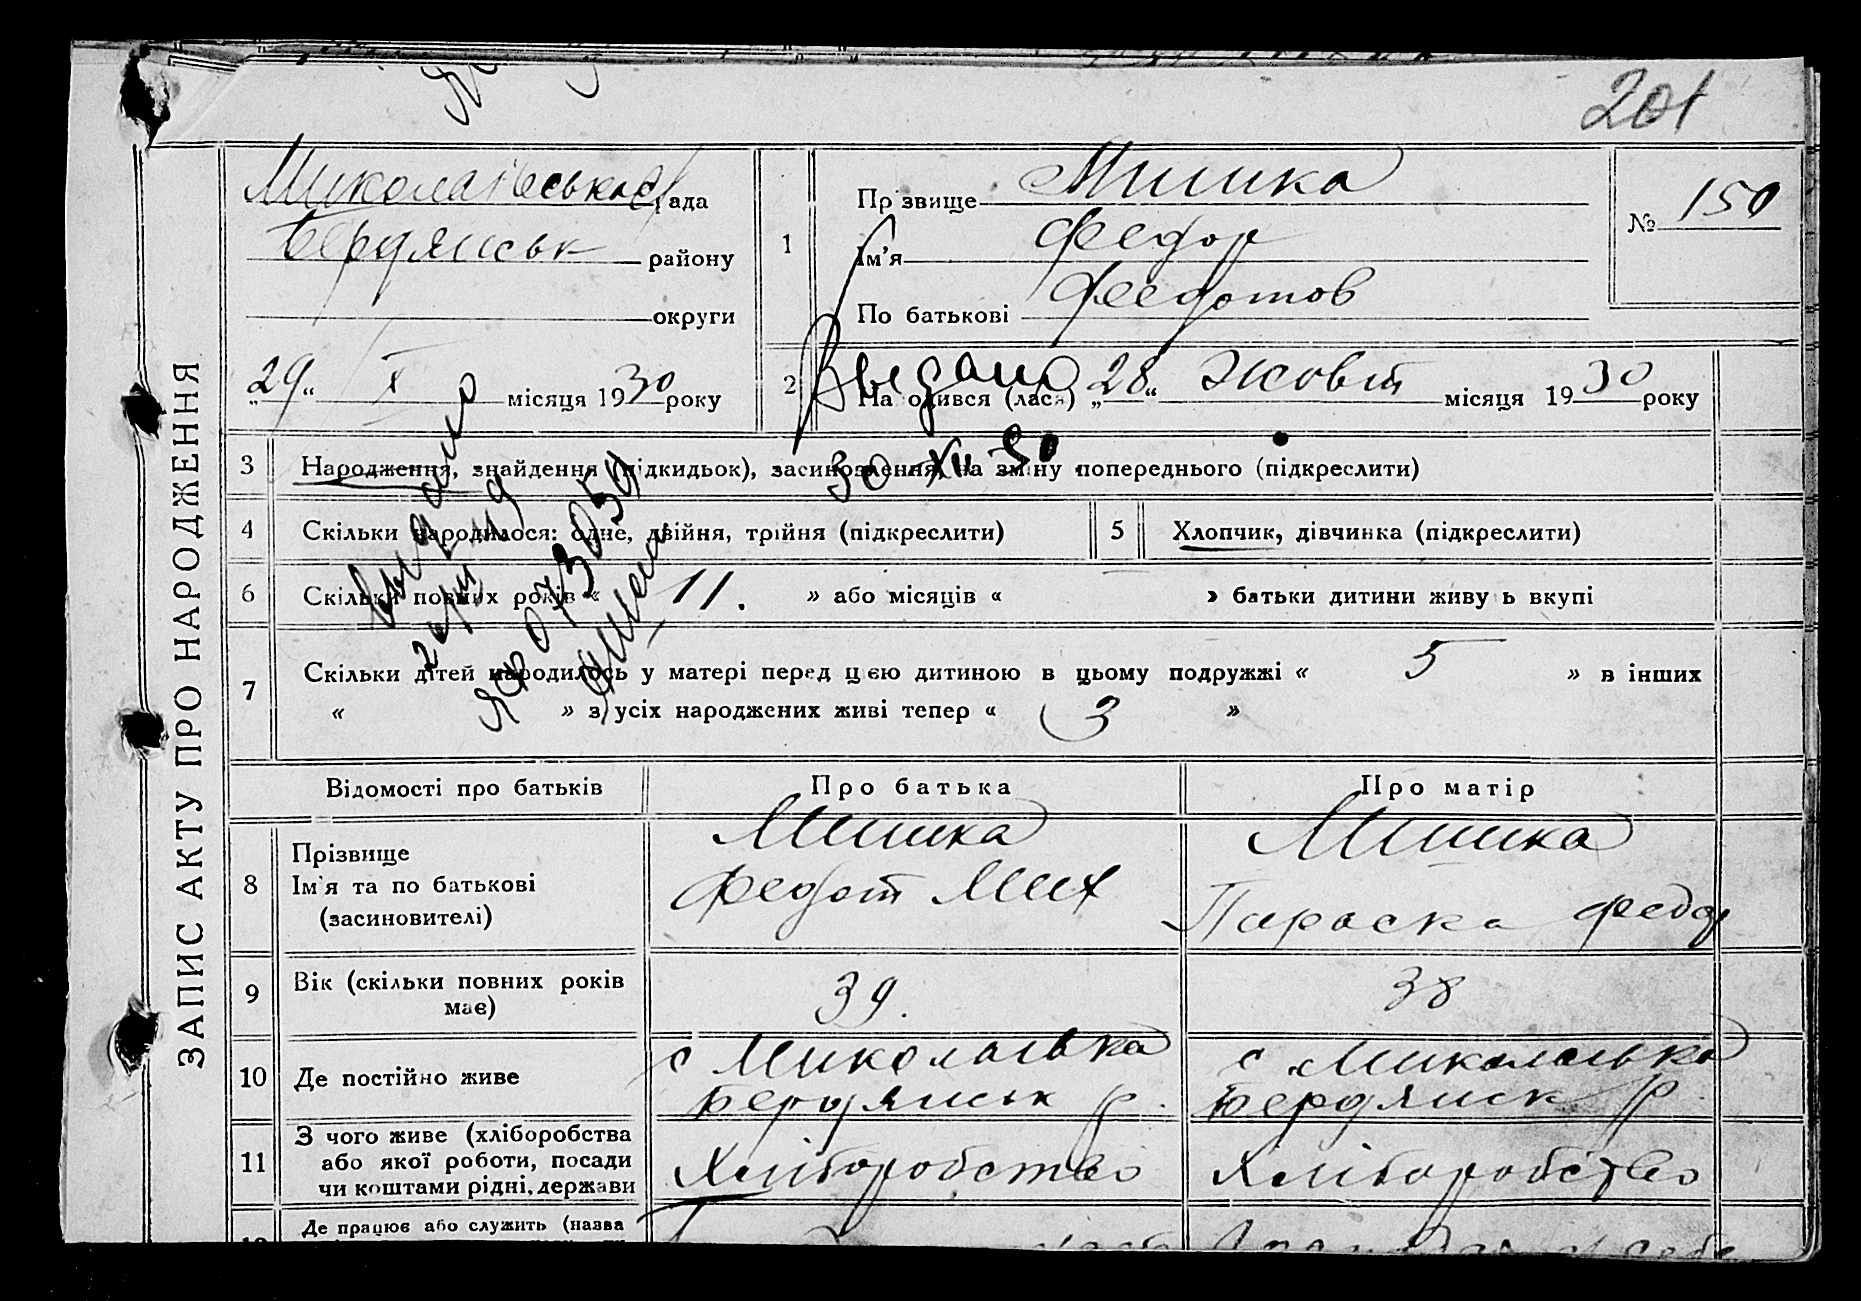 201
ЗАПИС АКТУ ПРО НАРОДЖЕННЯ
Миколаївська рада
Бердянськ району
округи
„29“ X місяця 1930 року
1
Прізвище Мишка
Ім'я Федор
По батькові Федотов
№ 150
2 Народився (лася) „28“ Жовт місяця 1930 року
Выдано
30 XII 30
3 Народження, знайдення (підкидьок), засиновлення, на зміну попереднього (підкреслити)
4 Скільки народилося: одне, двійня, трійня (підкреслити)
5 Хлопчик, дівчинка (підкреслити)
6 Скільки повних років « 11. » або місяців « » батьки дитини живуть вкупі
7 Скільки дітей народилось у матері перед цією дитиною в цьому подружжі « 5 » в інших
« » з усіх народжених живі тепер « 3 »
выдано
ЯФ 073059
Відомості про батьків
Про батька
Про матір
8 Прізвище
Ім'я та по батькові
(засиновителі)
Мишка
Федот Мих
Мишка
Параска Федор
9 Вік (скільки повних років
має)
39.
38
10 Де постійно живе
с Миколаївка
Бердянськ р.
с Миколаївка
Бердянськ р.
11 З чого живе (хліборобства
або якої роботи, посади
чи коштами рідні, держави
Хліборобство
Хліборобство
Де працює або служить (назва